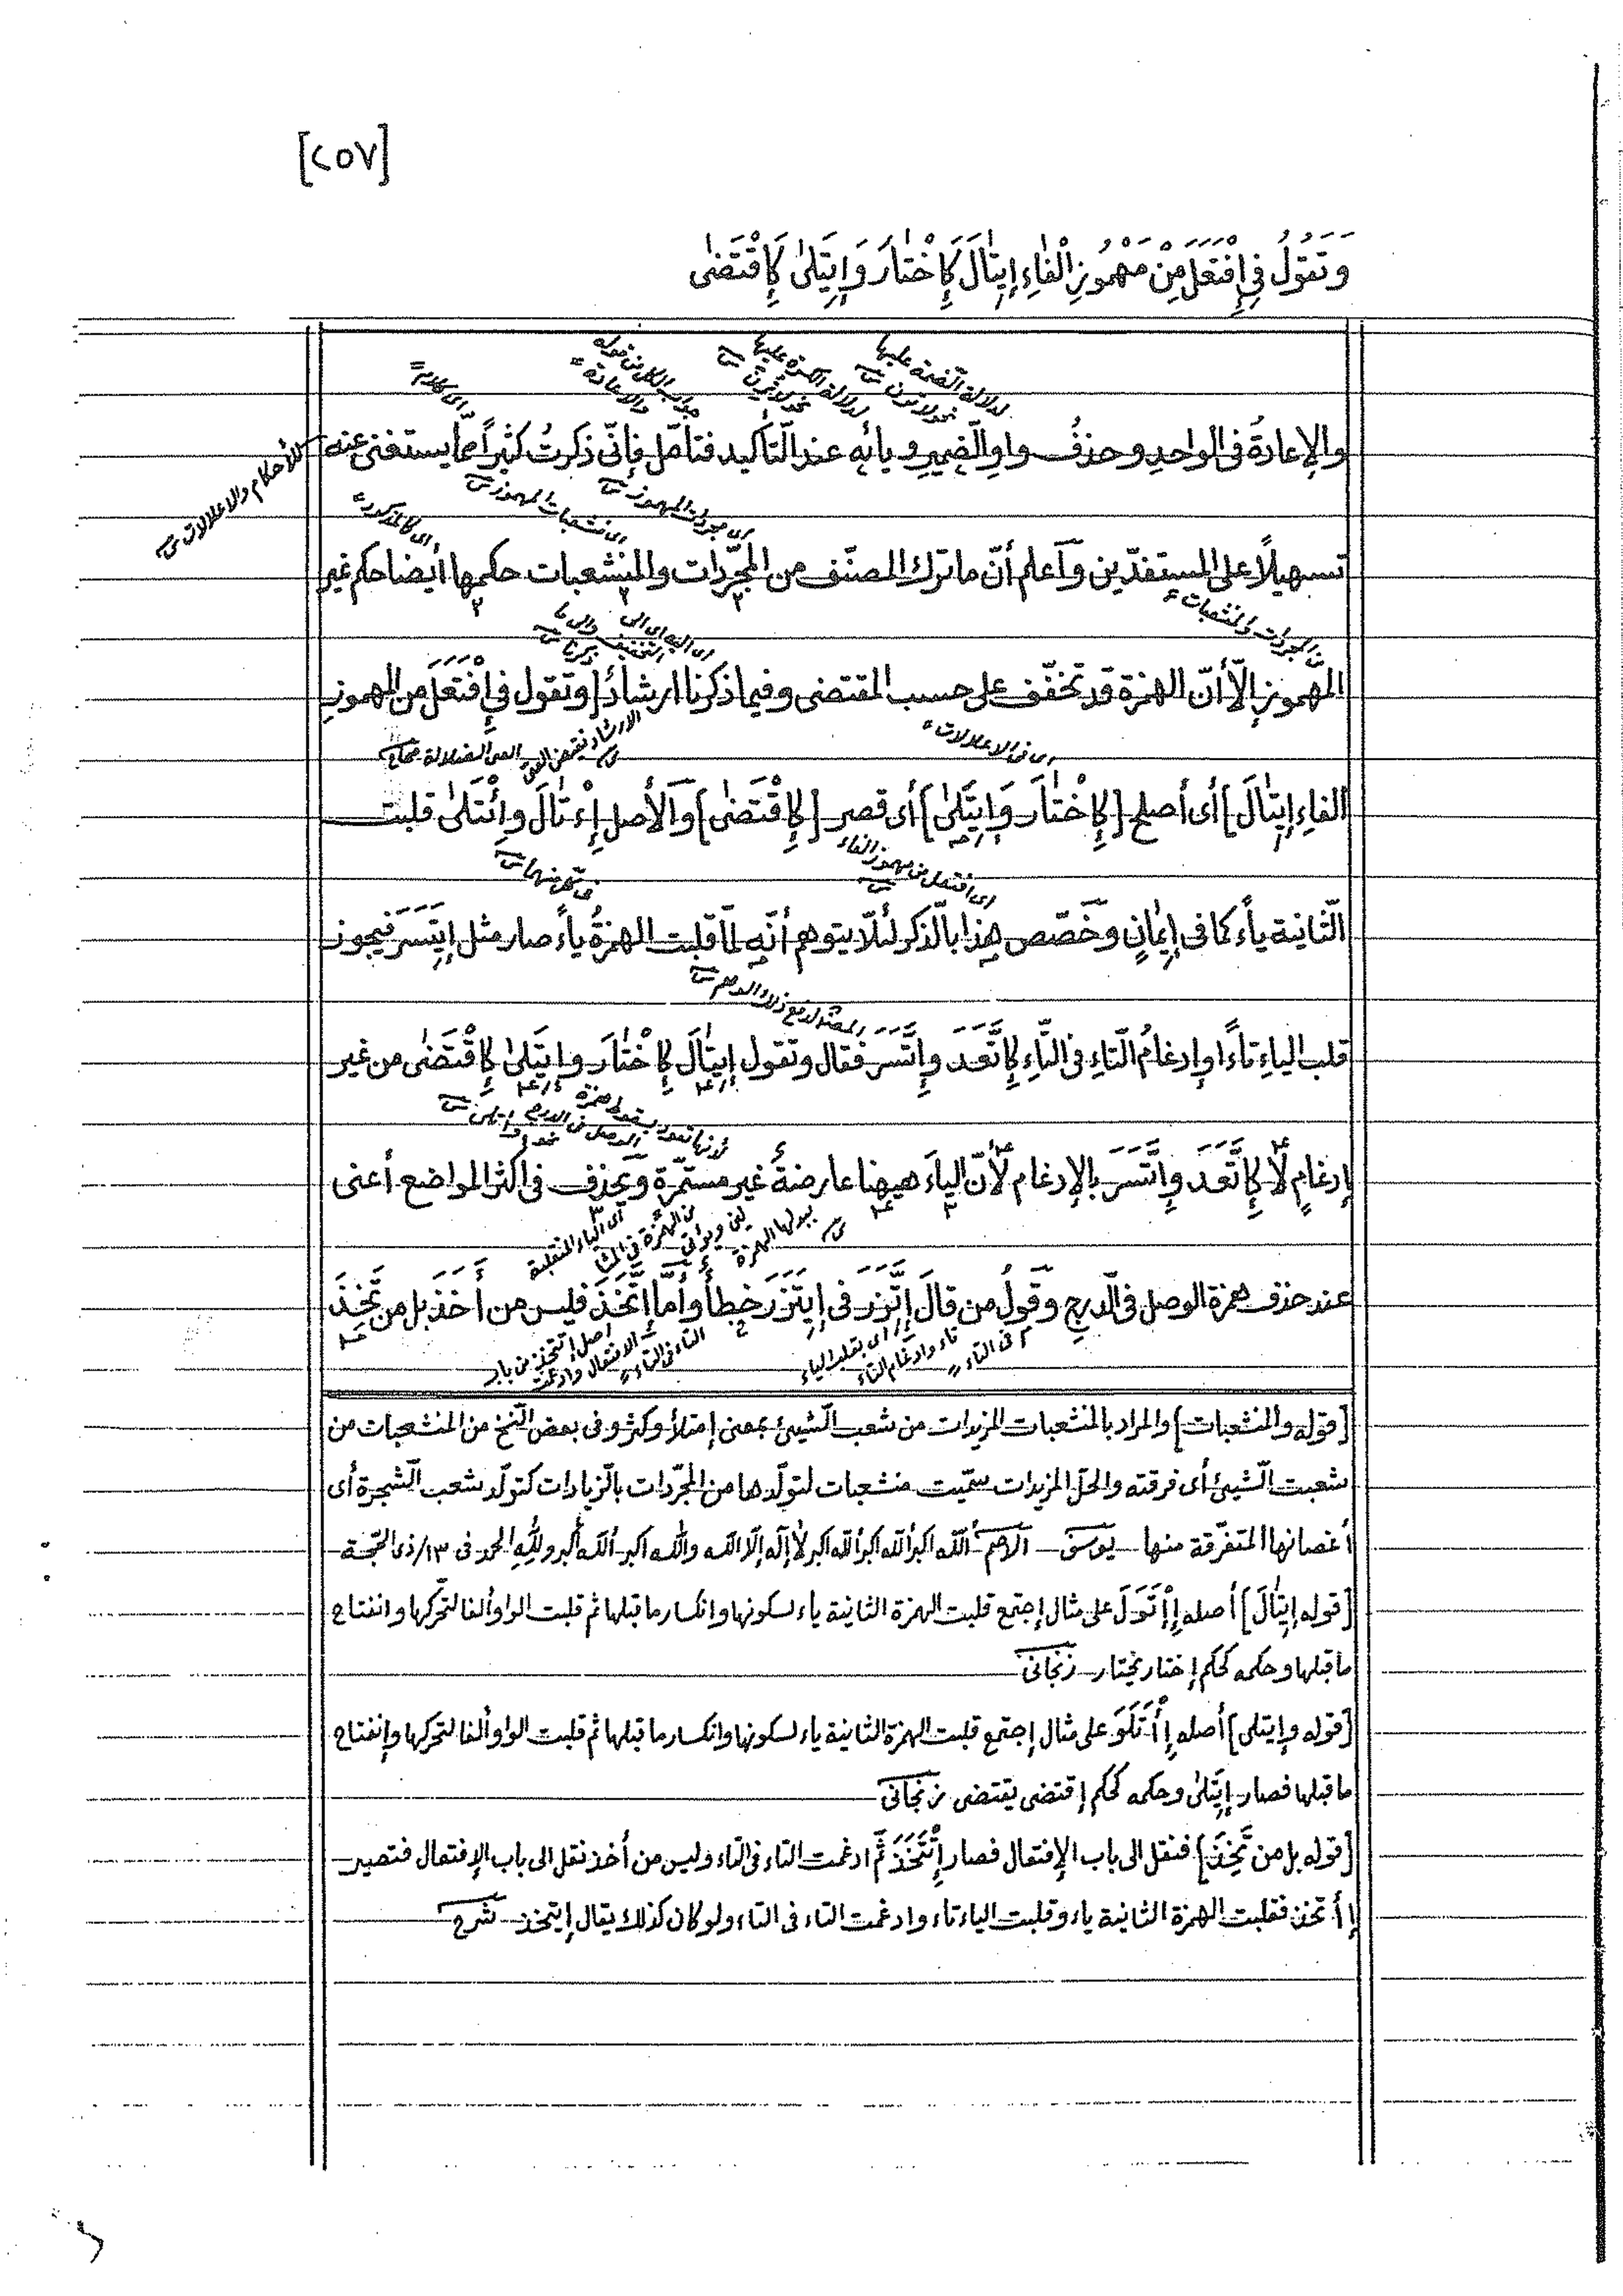 [٢٥٧]
وَتَقُولُ فِي إِفْتَعَلَ مِنْ مَهْمُوزِ الْفَاءِ إِيتَالَ كَإِخْتَارَ وَإِيتَلىٰ كَإِقْتَضىٰ
لدلالة الضمة عليها
لدلالة الكسرة عليها
والإعادةُ فى الواحدِ وحذفُ واوِ الضميرِ ويائه عند التأكيد فتأمّل فإنّى ذكرتُ كثيراً ممّا يستغنى عنه
للأحكام والاعلالات
اى مجردات المهموز
اى منشعبات المهموز
اى كالمذكور
تسهيلاً على المستفدّين وآعلم أنّ ما ترك المصنّف من المجرّدات والمنشعبات حكمها أيضا حكم غير
من المجردات والمنشعبات
المهموز إلّا أنّ الهمزة قد تخفّف على حسب المقتضى وفيما ذكرنا ارشادٌ [وتقول فى إِفْتَعَلَ من المهموز
اى فى الاعلالات
الفاءِ إِيتَالَ] أى أصلح [كَإِخْتَارَ وَإِيتَلىٰ] أى قصر [كَإِقْتَضىٰ] وآلأصل إِءْتَالَ وإِئْتَلىٰ قلبت
اى افتعل من مهموز الفاء
الثّانية ياءً كما فى إِيمَانٍ وخصّص هذا بالذّكر لئلّا يتوهم أنّه لمّا قلبت الهمزةُ ياءً صار مثل إِيتَسَرَ فيجوز
المصنّف لدفع ذلك الوهم
قلب الياءِ تاءً وإدغامُ التّاءِ فى التّاءِ كَإِتَّعَدَ وإِتَّسَرَ فقال وتقول إِيتَالَ كَإِخْتَارَ وإِيتَلىٰ كَإِقْتَضىٰ من غير
إدغامٍ لا كَإِتَّعَدَ وإِتَّسَرَ بالإدغام لأنّ الياءَ ههنا عارضةٌ غير مستمّرة ويحذف فى اكثر المواضع أعنى
عند حذف همزة الوصل فى الدّرج وقولُ من قالَ إِتَّزَرَ فى إِيتَزَرَ خطأٌ وأمّا إِتَّخَذَ فليس من أَخَذَ بل من تَخِذَ
اى بقلب الياء
تاء وادغام التاء
فى التاء
اصل إتتخذ من باب
الافتعال وادغمت
التاء فى التاء
[قوله والمنشعبات] والمراد بالمنشعبات المزيدات من شعب الشّيئ بمعنى إمتلأ وكثر وفى بعض النّسخ من المنشعبات من
شعبت الشّيئ أى فرقته والحقّ المزيدات سمّيت منشعبات لتولّدها من المجرّدات بالزّيادات كتولّد شعب الشّجرة أى
أغصانها المتفرّقة منها يوسف آلأصم ألله اكبر ألله اكبر ألله اكبر لا إله إلا الله والله اكبر ألله أكبر ولله الحمد فى ١٣/ذى الحّجة
[قوله إيتَالَ] أصله إِأْتَوَلَ على مثال إجتمع قلبت الهمزة الثانية ياء لسكونها وانكسار ما قبلها ثم قلبت الواو ألفا لتحّركها وانفتاح
ما قبلها وحكمه كحكم إختار يختار زنجانى
[قوله وإيتلى] أصله إِأْتَلَوَ على مثال إجتمع قلبت الهمزة الثانية ياء لسكونها وانكسار ما قبلها ثم قلبت الواو ألفا لتحركها وإنفتاح
ما قبلها فصار إيتلىٰ وحكمه كحكم إقتضى يقتضى زنجانى
[قوله بل من تَخِذَ] فنقل الى باب الإفتعال فصار إِتْتَخَذَ ثم ادغمت التاء فى التاء وليس من أخذ نقل الى باب الإفتعال فتصير
إأتخذ فقلبت الهمزة الثانية ياء وقلبت الياء تاء وادغمت التاء فى التاء ولو كان كذلك يقال إيتخذ شرح